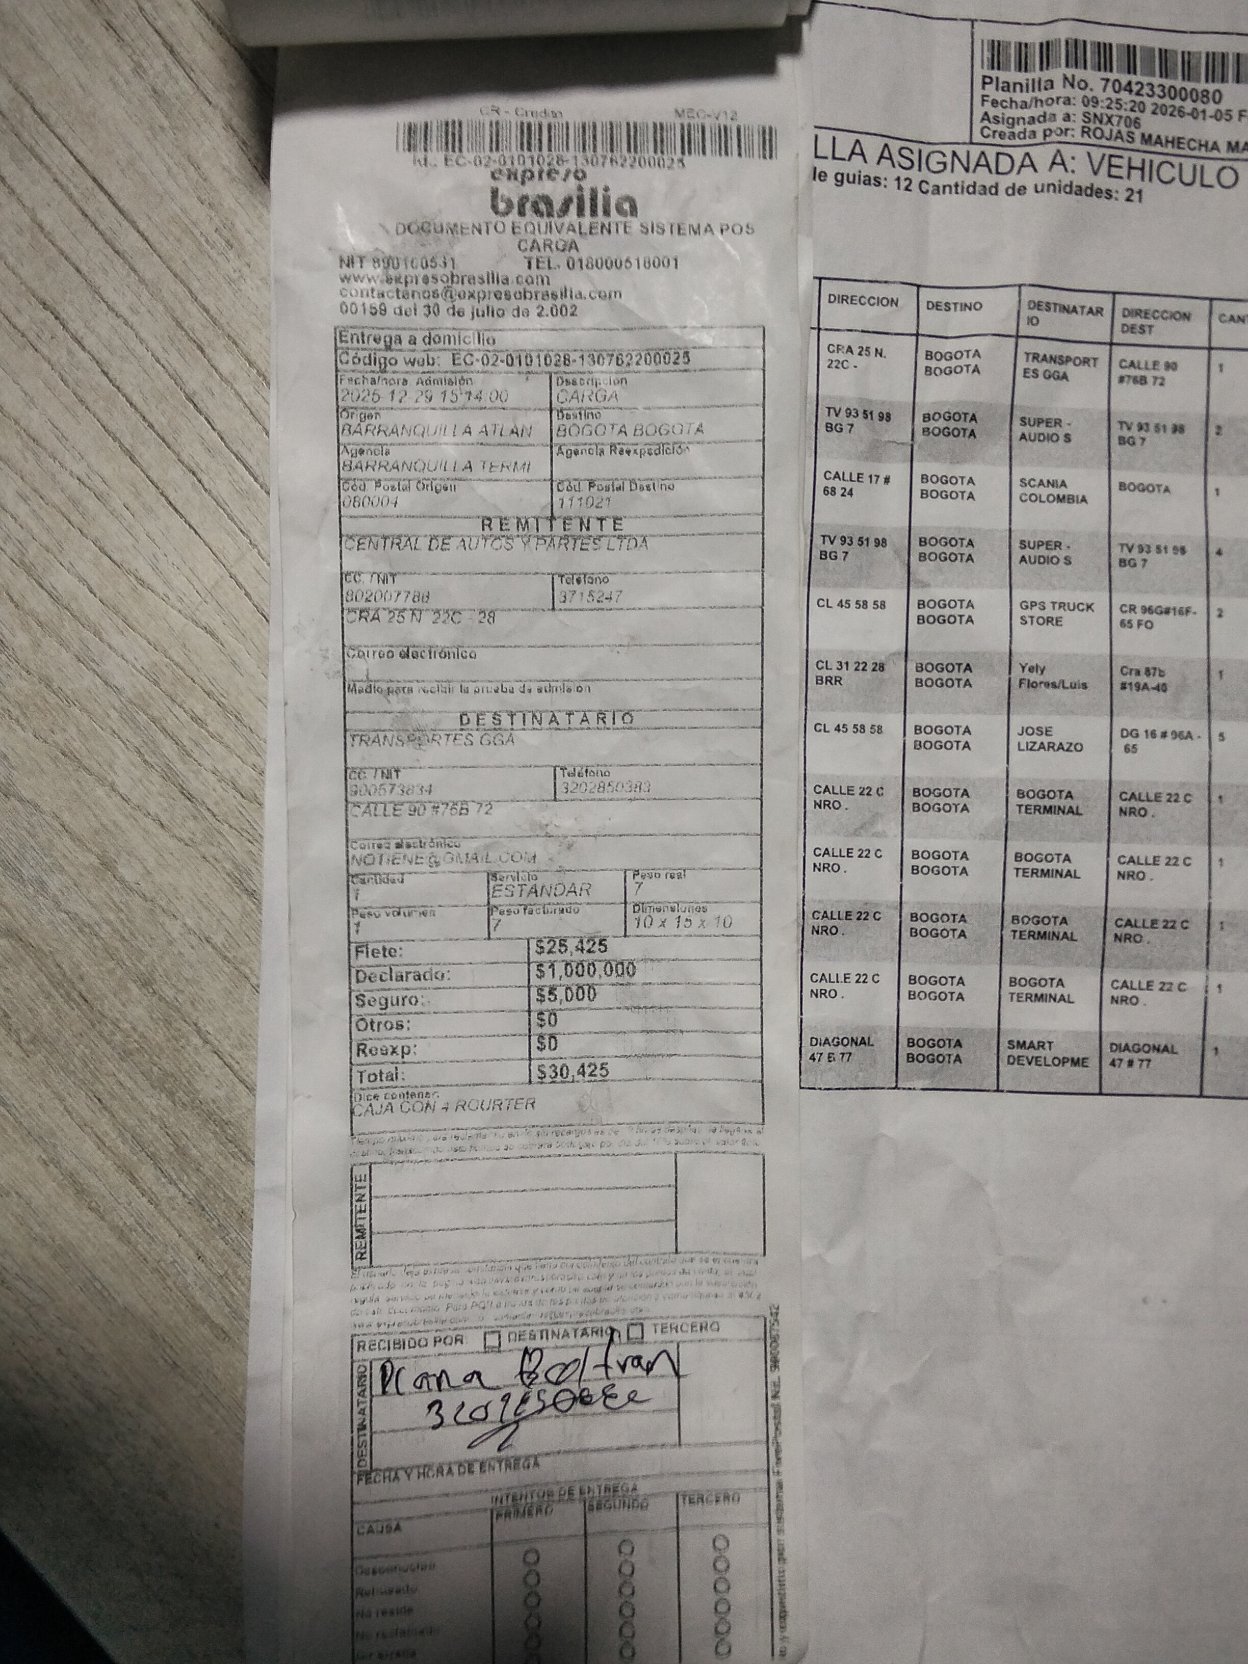 CR - Credito MEC-V12
Id.: EC-02-0101028-130762200025
expreso
brasilia
DOCUMENTO EQUIVALENTE SISTEMA POS
CARGA
NIT 890100531 TEL. 018000518001
www.expresobrasilia.com
contactenos@expresobrasilia.com
00159 del 30 de julio de 2.002
Entrega a domicilio
Código web: EC-02-0101028-130762200025
Fecha/hora Admisión Descripción
2025-12-29 15:14:00 CARGA
Origen Destino
BARRANQUILLA ATLAN BOGOTA BOGOTA
Agencia Agencia Reexpedición
BARRANQUILLA TERMI
Cód. Postal Origen Cód. Postal Destino
080004 111021
REMITENTE
CENTRAL DE AUTOS Y PARTES LTDA
CC. / NIT Teléfono
802007788 3715247
CRA 25 N. 22C - 28
Correo electrónico
Medio para recibir la prueba de admision
DESTINATARIO
TRANSPORTES GGA
CC. / NIT Teléfono
900573834 3202850383
CALLE 90 #76B 72
Correo electrónico
NOTIENE@GMAIL.COM
Cantidad Servicio Peso real
1 ESTANDAR 7
Peso volumen Peso facturado Dimensiones
1 7 10 x 15 x 10
Flete: $25,425
Declarado: $1,000,000
Seguro: $5,000
Otros: $0
Reexp: $0
Total: $30,425
Dice contener:
CAJA CON 4 ROURTER
REMITENTE
RECIBIDO POR: DESTINATARIO TERCERO
DESTINATARIO
Diana Beltran
FECHA Y HORA DE ENTREGA
INTENTOS DE ENTREGA
CAUSA PRIMERO SEGUNDO TERCERO
Desconocido
Rehusado
No reside
No reclamado
Planilla No. 70423300080
Fecha/hora: 09:25:20 2026-01-05 F
Asignada a: SNX706
Creada por: ROJAS MAHECHA MA
LLA ASIGNADA A: VEHICULO
le guias: 12 Cantidad de unidades: 21
DIRECCION DESTINO DESTINATARIO DIRECCION DEST CANT
CRA 25 N. 22C - BOGOTA BOGOTA TRANSPORTES GGA CALLE 90 #76B 72 1
TV 93 51 98 BG 7 BOGOTA BOGOTA SUPER - AUDIO S TV 93 51 98 BG 7 2
CALLE 17 # 68 24 BOGOTA BOGOTA SCANIA COLOMBIA BOGOTA 1
TV 93 51 98 BG 7 BOGOTA BOGOTA SUPER - AUDIO S TV 93 51 98 BG 7 4
CL 45 58 58 BOGOTA BOGOTA GPS TRUCK STORE CR 96G#16F-65 FO 2
CL 31 22 28 BRR BOGOTA BOGOTA Yely Flores/Luis Cra 87b #19A-40 1
CL 45 58 58 BOGOTA BOGOTA JOSE LIZARAZO DG 16 # 96A - 65 5
CALLE 22 C NRO . BOGOTA BOGOTA BOGOTA TERMINAL CALLE 22 C NRO . 1
CALLE 22 C NRO . BOGOTA BOGOTA BOGOTA TERMINAL CALLE 22 C NRO . 1
CALLE 22 C NRO . BOGOTA BOGOTA BOGOTA TERMINAL CALLE 22 C NRO . 1
CALLE 22 C NRO . BOGOTA BOGOTA BOGOTA TERMINAL CALLE 22 C NRO . 1
DIAGONAL 47 B 77 BOGOTA BOGOTA SMART DEVELOPME DIAGONAL 47 # 77 1